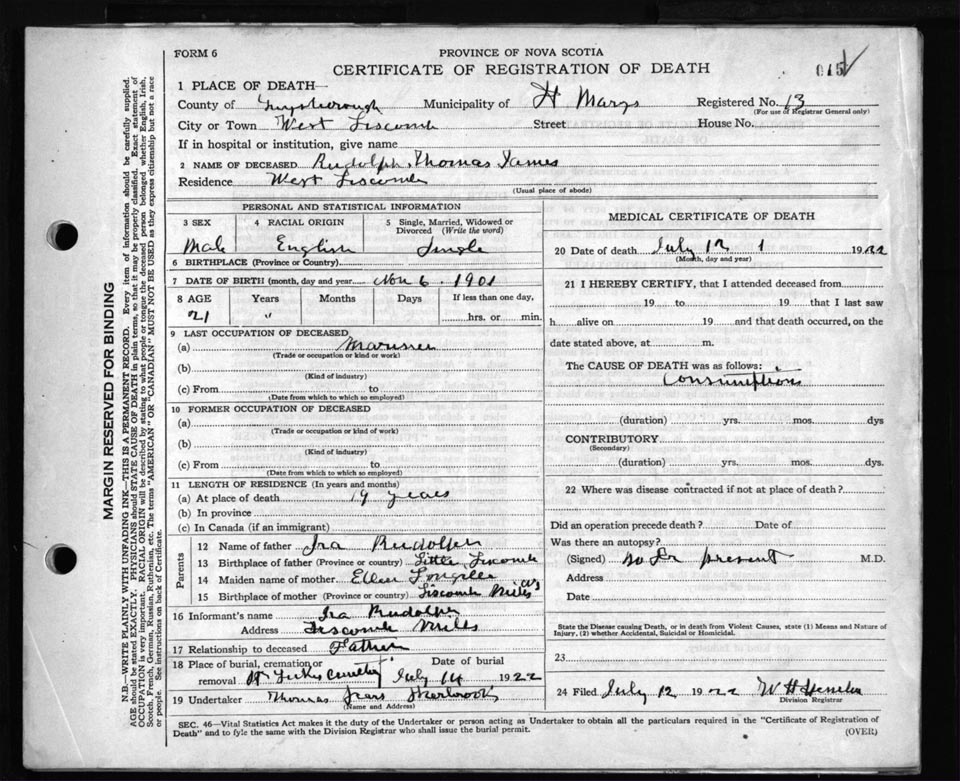 FORM 6
PROVINCE OF NOVA SCOTIA
CERTIFICATE OF REGISTRATION OF DEATH
015
1 PLACE OF DEATH—
County of Guysborough Municipality of St Marys Registered No. 13
(For use of Registrar General only)
City or Town West Liscomb Street House No.
If in hospital or institution, give name
2 NAME OF DECEASED Rudolph, Thomas James
Residence West Liscomb
(Usual place of abode)
PERSONAL AND STATISTICAL INFORMATION
3 SEX 4 RACIAL ORIGIN 5 Single, Married, Widowed or Divorced (Write the word)
Male English Single
6 BIRTHPLACE (Province or Country)
7 DATE OF BIRTH (month, day and year) Nov 6 1901
8 AGE Years Months Days If less than one day,
21 " hrs. or min.
9 LAST OCCUPATION OF DECEASED
(a)
(Trade or occupation or kind of work)
(b)
(Kind of industry)
(c) From to
(Date from which to which so employed)
10 FORMER OCCUPATION OF DECEASED
(a)
(Trade or occupation or kind of work)
(b)
(Kind of industry)
(c) From to
(Date from which to which so employed)
11 LENGTH OF RESIDENCE (In years and months)
(a) At place of death 19 years
(b) In province
(c) In Canada (if an immigrant)
Parents
12 Name of father Ira Rudolph
13 Birthplace of father (Province or country) Little Liscomb
14 Maiden name of mother Ellen
15 Birthplace of mother (Province or country) Liscomb Mills
16 Informant's name Ira Rudolph
Address Liscomb Mills
17 Relationship to deceased Father
18 Place of burial, cremation or Date of burial
removal St Lukes Cemetery July 14 1922
19 Undertaker Thomas Sherbrook
(Name and Address)
MEDICAL CERTIFICATE OF DEATH
20 Date of death July 12 1 1922
(Month, day and year)
21 I HEREBY CERTIFY, that I attended deceased from
19 to 19 that I last saw
h alive on 19 and that death occurred, on the
date stated above, at m.
The CAUSE OF DEATH was as follows:
Consumption
(duration) yrs. mos. dys
CONTRIBUTORY
(Secondary)
(duration) yrs. mos. dys.
22 Where was disease contracted if not at place of death?
Did an operation precede death? Date of
Was there an autopsy?
(Signed) no Dr present M.D.
Address
Date
State the Disease causing Death, or in death from Violent Causes, state (1) Means and Nature of
Injury, (2) whether Accidental, Suicidal or Homicidal.
23
24 Filed July 12 1922 W H
Division Registrar
SEC. 46—Vital Statistics Act makes it the duty of the Undertaker or person acting as Undertaker to obtain all the particulars required in the "Certificate of Registration of
Death" and to fyle the same with the Division Registrar who shall issue the burial permit.
(OVER)
MARGIN RESERVED FOR BINDING
N.B.—WRITE PLAINLY WITH UNFADING INK—THIS IS A PERMANENT RECORD. Every item of information should be carefully supplied.
AGE should be stated EXACTLY. PHYSICIANS should STATE CAUSE OF DEATH in plain terms, so that it may be properly classified. Exact statement of
OCCUPATION is very important. RACIAL ORIGIN will be described by stating to what people or tongue the deceased person belonged whether English, Irish,
Scotch, French, German, Russian, Ruthenian, etc. The terms "AMERICAN" OR "CANADIAN" MUST NOT BE USED as they express citizenship but not a race
or people. See instructions on back of Certificate.